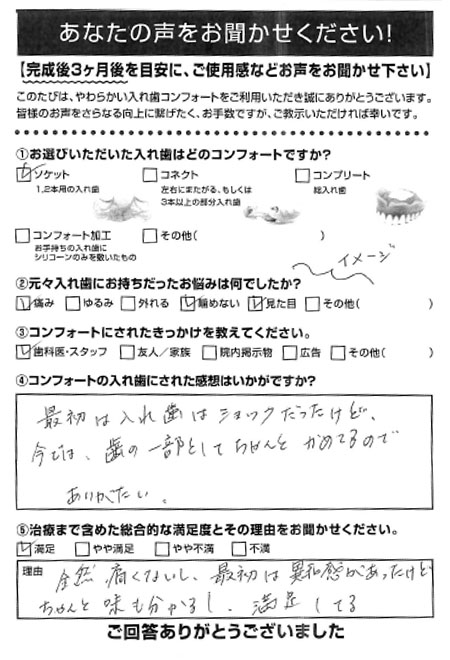 あなたの声をお聞かせください!
【完成後3ヶ月後を目安に、ご使用感などお声をお聞かせ下さい】
このたびは、やわらかい入れ歯コンフォートをご利用いただき誠にありがとうございます。
皆様のお声をさらなる向上に繋げたく、お手数ですが、ご教示いただければ幸いです。
①お選びいただいた入れ歯はどのコンフォートですか?
ソケット コネクト コンプリート
1,2本用の入れ歯 左右にまたがる、もしくは 総入れ歯
3本以上の部分入れ歯
コンフォート加工 その他( )
お手持ちの入れ歯に
シリコーンのみを敷いたもの
イメージ
②元々入れ歯にお持ちだったお悩みは何でしたか?
痛み ゆるみ 外れる 噛めない 見た目 その他( )
③コンフォートにされたきっかけを教えてください。
歯科医・スタッフ 友人/家族 院内掲示物 広告 その他( )
④コンフォートの入れ歯にされた感想はいかがですか?
最初は入れ歯はショックだったけど、
今では、歯の一部としてちゃんとかめてるので
ありがたい。
⑤治療まで含めた総合的な満足度とその理由をお聞かせください。
満足 やや満足 やや不満 不満
理由 全然痛くないし、最初は異和感があったけど
ちゃんと味も分かるし、満足してる
ご回答ありがとうございました